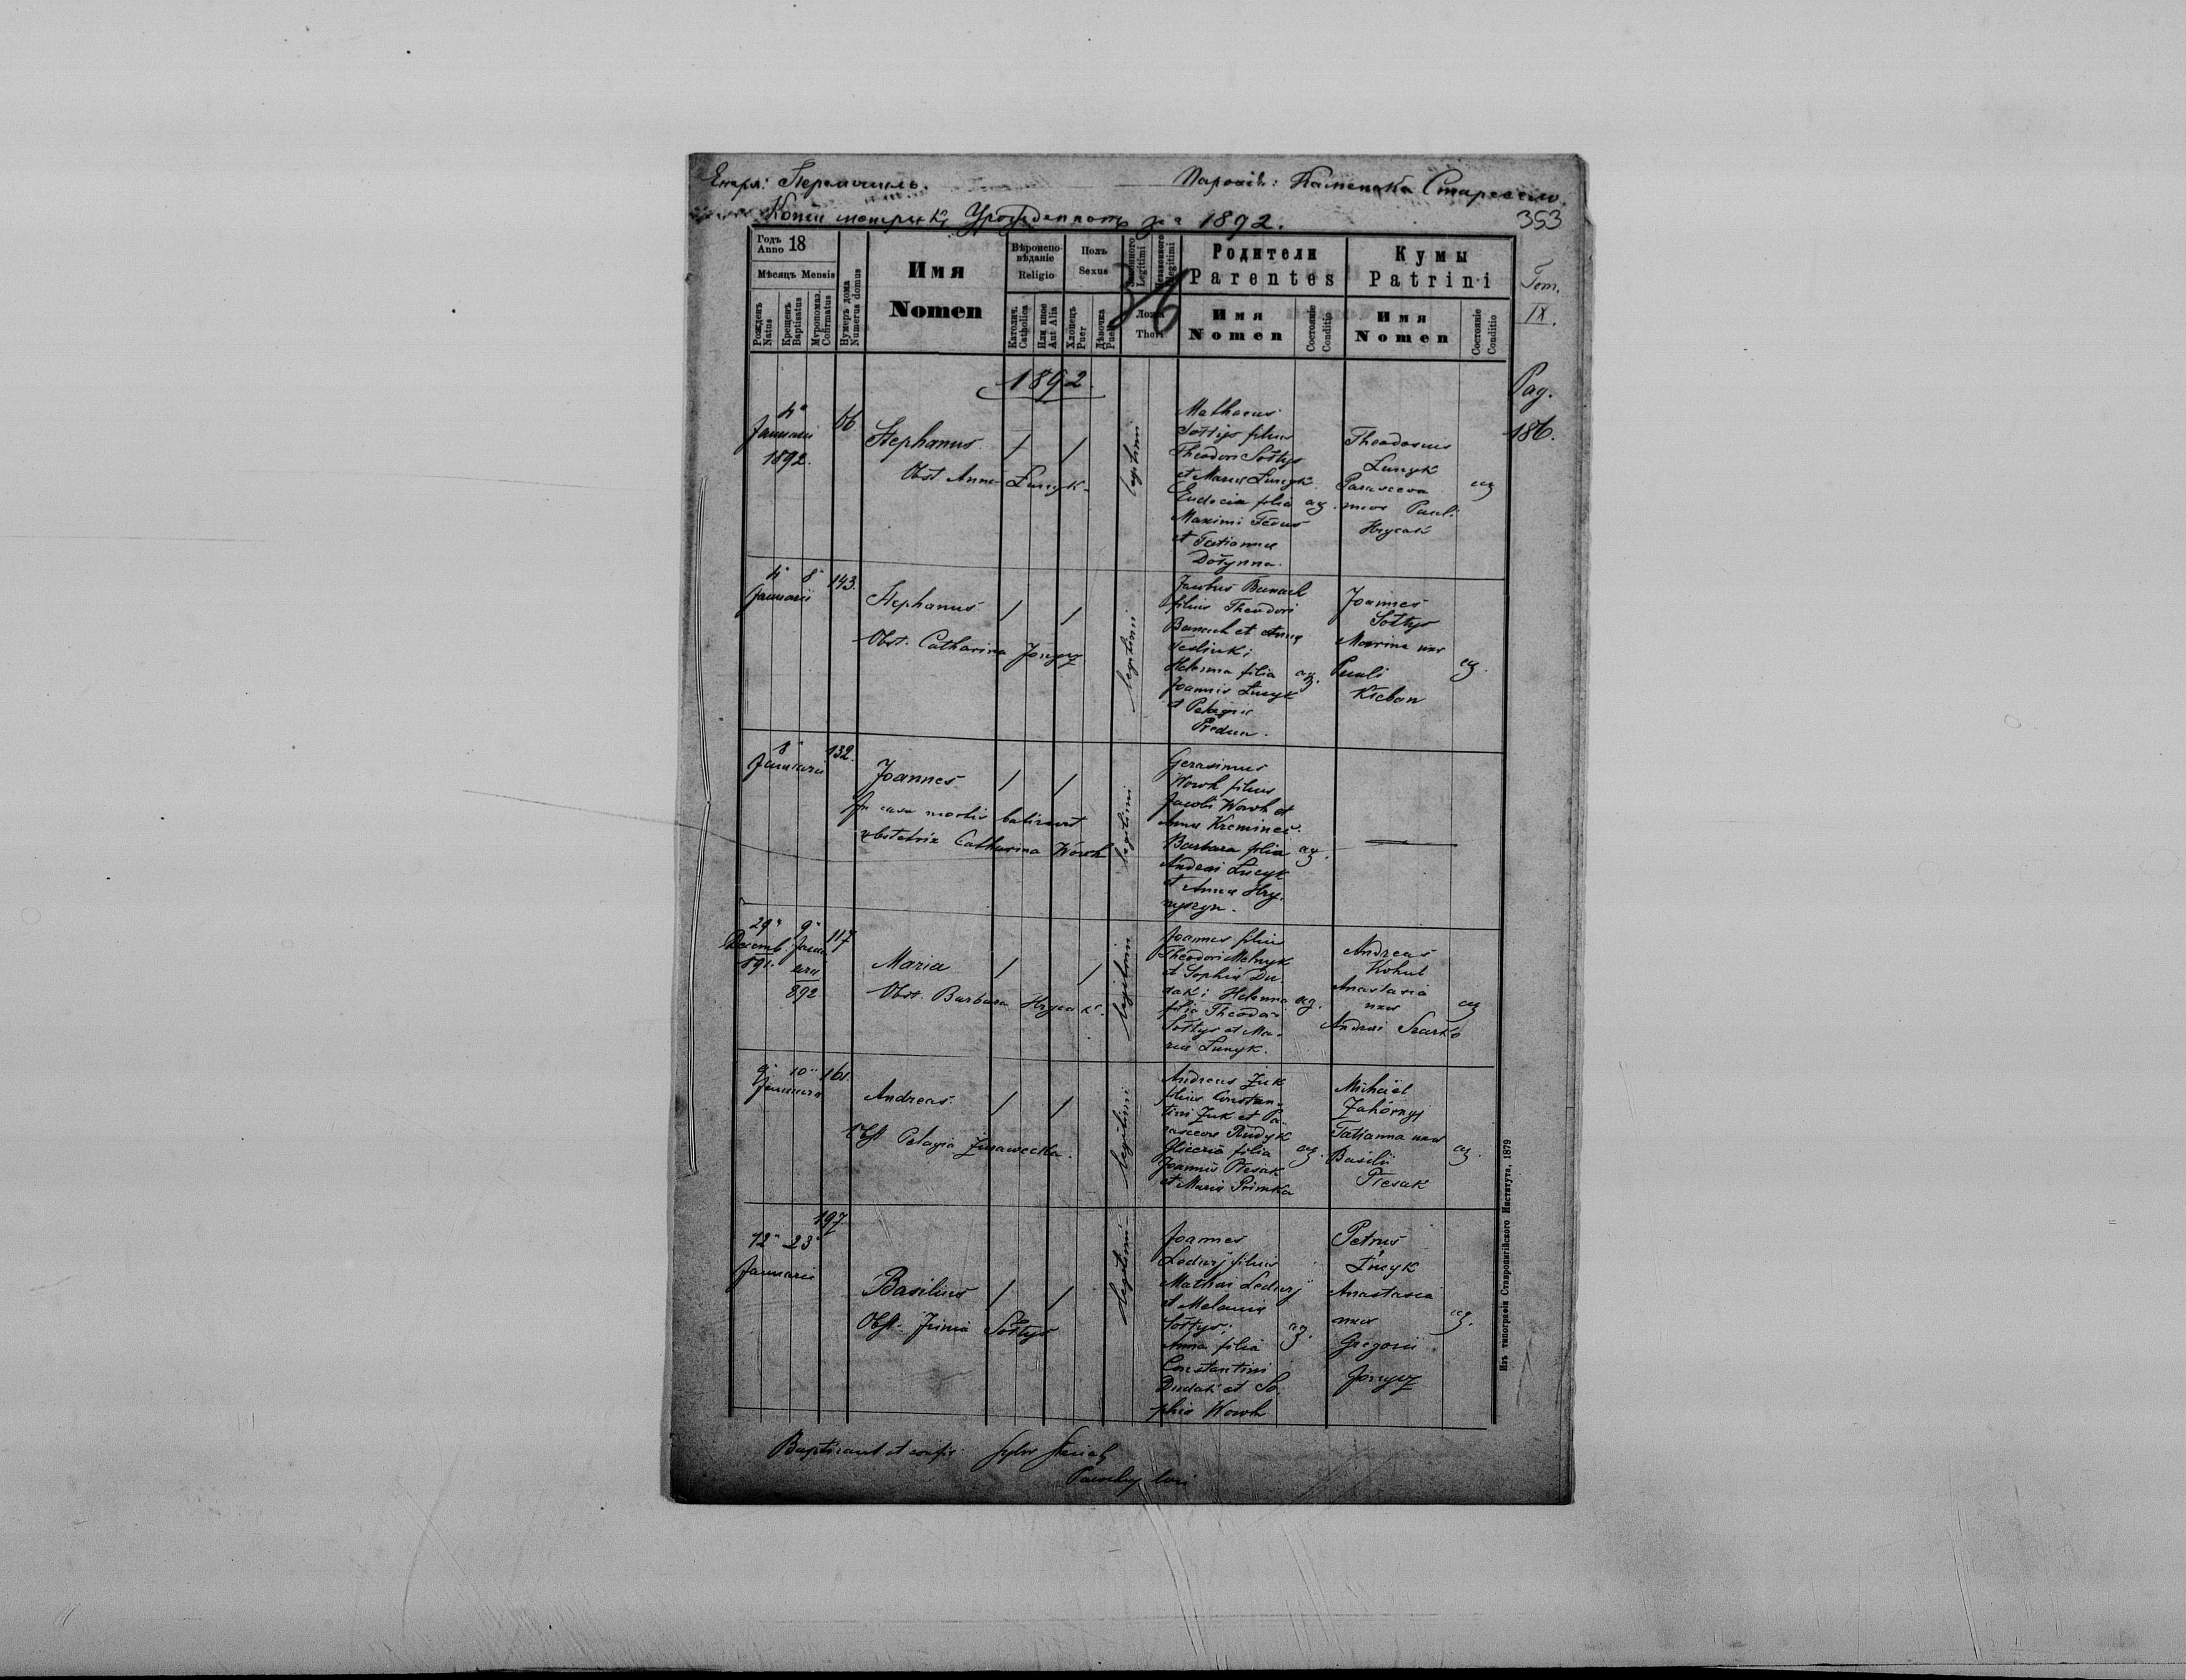 Епарх: Перемышль.
Парохія: Каменка Старесело.
Копія метрики Урожденныхъ за 1892.
353
Годъ Anno 18
Мѣсяцъ Mensis
Рожденъ Natus
Крещенъ Baptisatus
Муропомаз. Confirmatus
Нумеръ дома Numerus domus
Имя
Nomen
Вѣроиспо-
вѣданіе
Religio
Католич. Catholica
Или иное Aut Alia
Полъ
Sexus
Хлопецъ Puer
Дѣвочка Puella
Законного Legitimi
Незаконного Illegitimi
Ложа
Thori
Родители
Parentes
Имя
Nomen
Состояніе Conditio
Кумы
Patrini
Имя
Nomen
Состояніе Conditio
Tom.
IX.
Pag.
186.
1892.
4"
Januarii
1892.
66
Stephanus
/ /
Obst Anna Łucyk
legitimi
Mathaeus
Sołtys filius
Theodori Sołtys
et Maria Łucyk
Eudocia filia ag.
Maximi Fedus
et Tatianna
Dołynna.
Theodosius
Łucyk
Parasceva
uxor Pauli
Hrycak
ag
4" 8"
Januarii
143.
Stephanus
/ /
Obst. Catharina Jonycz
legitimi
Jacobus Banach
filius Theodori
Banach et Anna
Tesluk;
Helenna filia ag.
Joannis Łucyk
et Pelagia
Predun.
Joannes
Sołtys
Marina uxor
Pauli
Kleban
ag.
8"
Januarii
132.
Joannes
/ /
In casu mortis batizavit
obstetrix Catharina Wowk
legitimi
Gerasimus
Wowk filius
Jacobi Wowk et
Anna Kreminec.
Barbara filia ag.
Andrei Łucyk
et Anna Hry-
nyszyn.
29" 9"
Decemb. Janu
891. arii
892
117
Maria
/ /
Obst. Barbara Hrycak.
legitimi
Joannes filius
Theodori Melnyk
et Sophia Du-
dak; Helenna ag.
filia Theodori
Sołtys et Ma-
ria Łucyk.
Andreas
Kohut
Anastasia
uxor
Andrei Szarko
ag
9" 10"
Januarii
161.
Andreas.
/ /
Obst Pelagia Żurawecka.
legitimi
Andreas Żuk
filius Constan-
tini Żuk et Pa-
rasceva Rudyk
Gliceria filia ag.
Joannis Plesak
et Maria Primka
Michaël
Zahórnyj
Tatianna uxor
Basilii
Plesak
ag.
197
12" 23"
Januarii
Basilius
/ /
Obst. Irinia Sołtys
legitimi
Joannes
Ledwij filius
Mathei Ledwij
et Melania
Sołtys;
Anna filia ag.
Constantini
Dudak et So-
phia Wowk
Petrus
Łucyk
Anastasia
uxor
Gregorii
Jonycz
ag.
Baptisavit et confir.
Изъ типографіи Ставропигійского Института, 1879